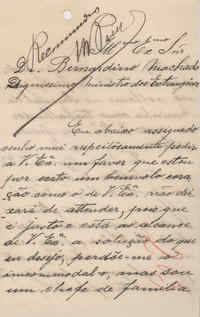 Recommendo
Illmo e Exmo Snr
Dr. Bernardino Machado
Dignissimo ministro dos Estrangeiros
Eu abaixo assignado
venho mui respeitosamente pedir
a V. Exª um favor que estou
por certo um benevolo cora
ção como o de V. Exª não dei
xará de attender, pois que
é justo e está ao alcance
de V. Exª a solução do que
eu desejo, perdôe-me o
incommodal-o, mas sou
um chefe de familia